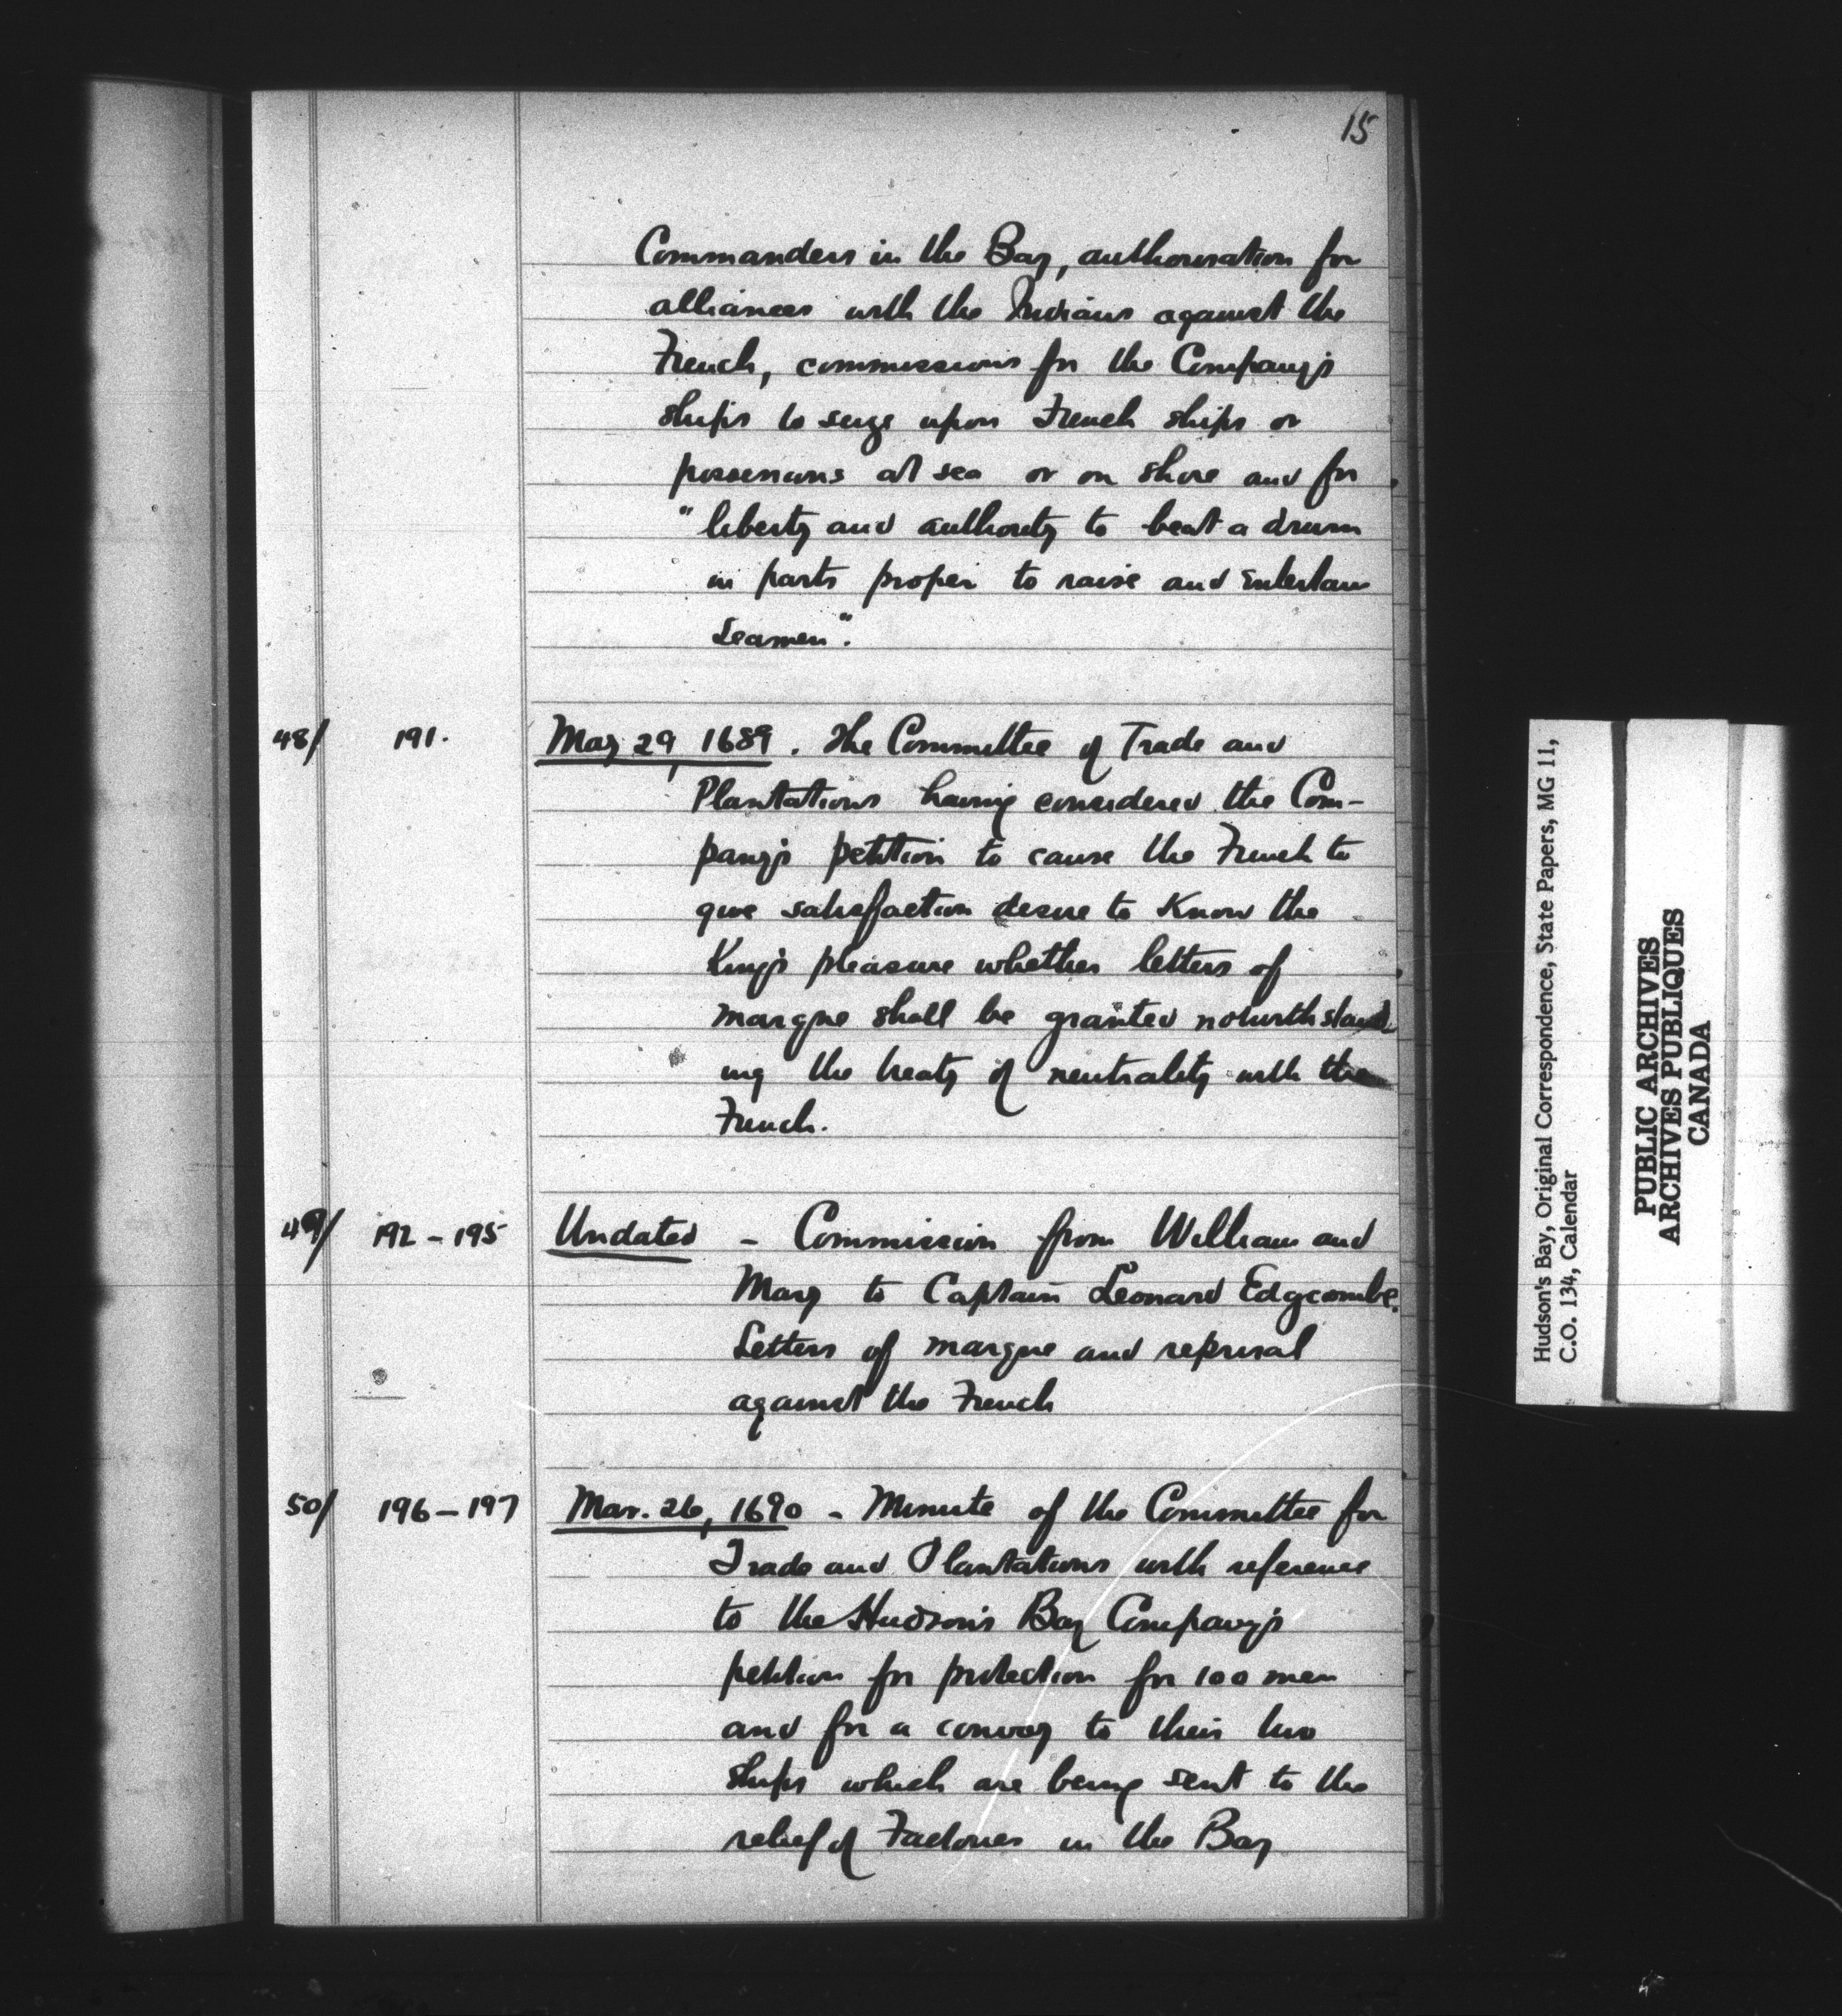 15
Commanders in the Bay, authorisation for
alliances with the Indians against the
French, commissions for the Company's
ships to seize upon French ships or
possessions at sea or on shore and for
"liberty and authority to beat a drum
in parts proper to raise and entertain
Seamen".
48/ 191. May 29, 1689. The Committee of Trade and
Plantations having considered the Com-
pany's petition to cause the French to
give satisfaction desire to know the
King's pleasure whether letters of
marque shall be granted notwithstand
ing the treaty of neutrality with the
French.
49/ 192-195 Undated - Commission from William and
Mary to Captain Leonard Edgcombe.
Letters of marque and reprisal
against the French
50/ 196-197 Mar. 26, 1690 - Minute of the Committee for
Trade and Plantations with reference
to the Hudson's Bay Company's
petition for protection for 100 men
and for a convoy to their two
ships which are being sent to the
relief of Factories in the Bay
Hudson's Bay, Original Correspondence, State Papers, MG 11,
C.O. 134, Calendar
PUBLIC ARCHIVES
ARCHIVES PUBLIQUES
CANADA